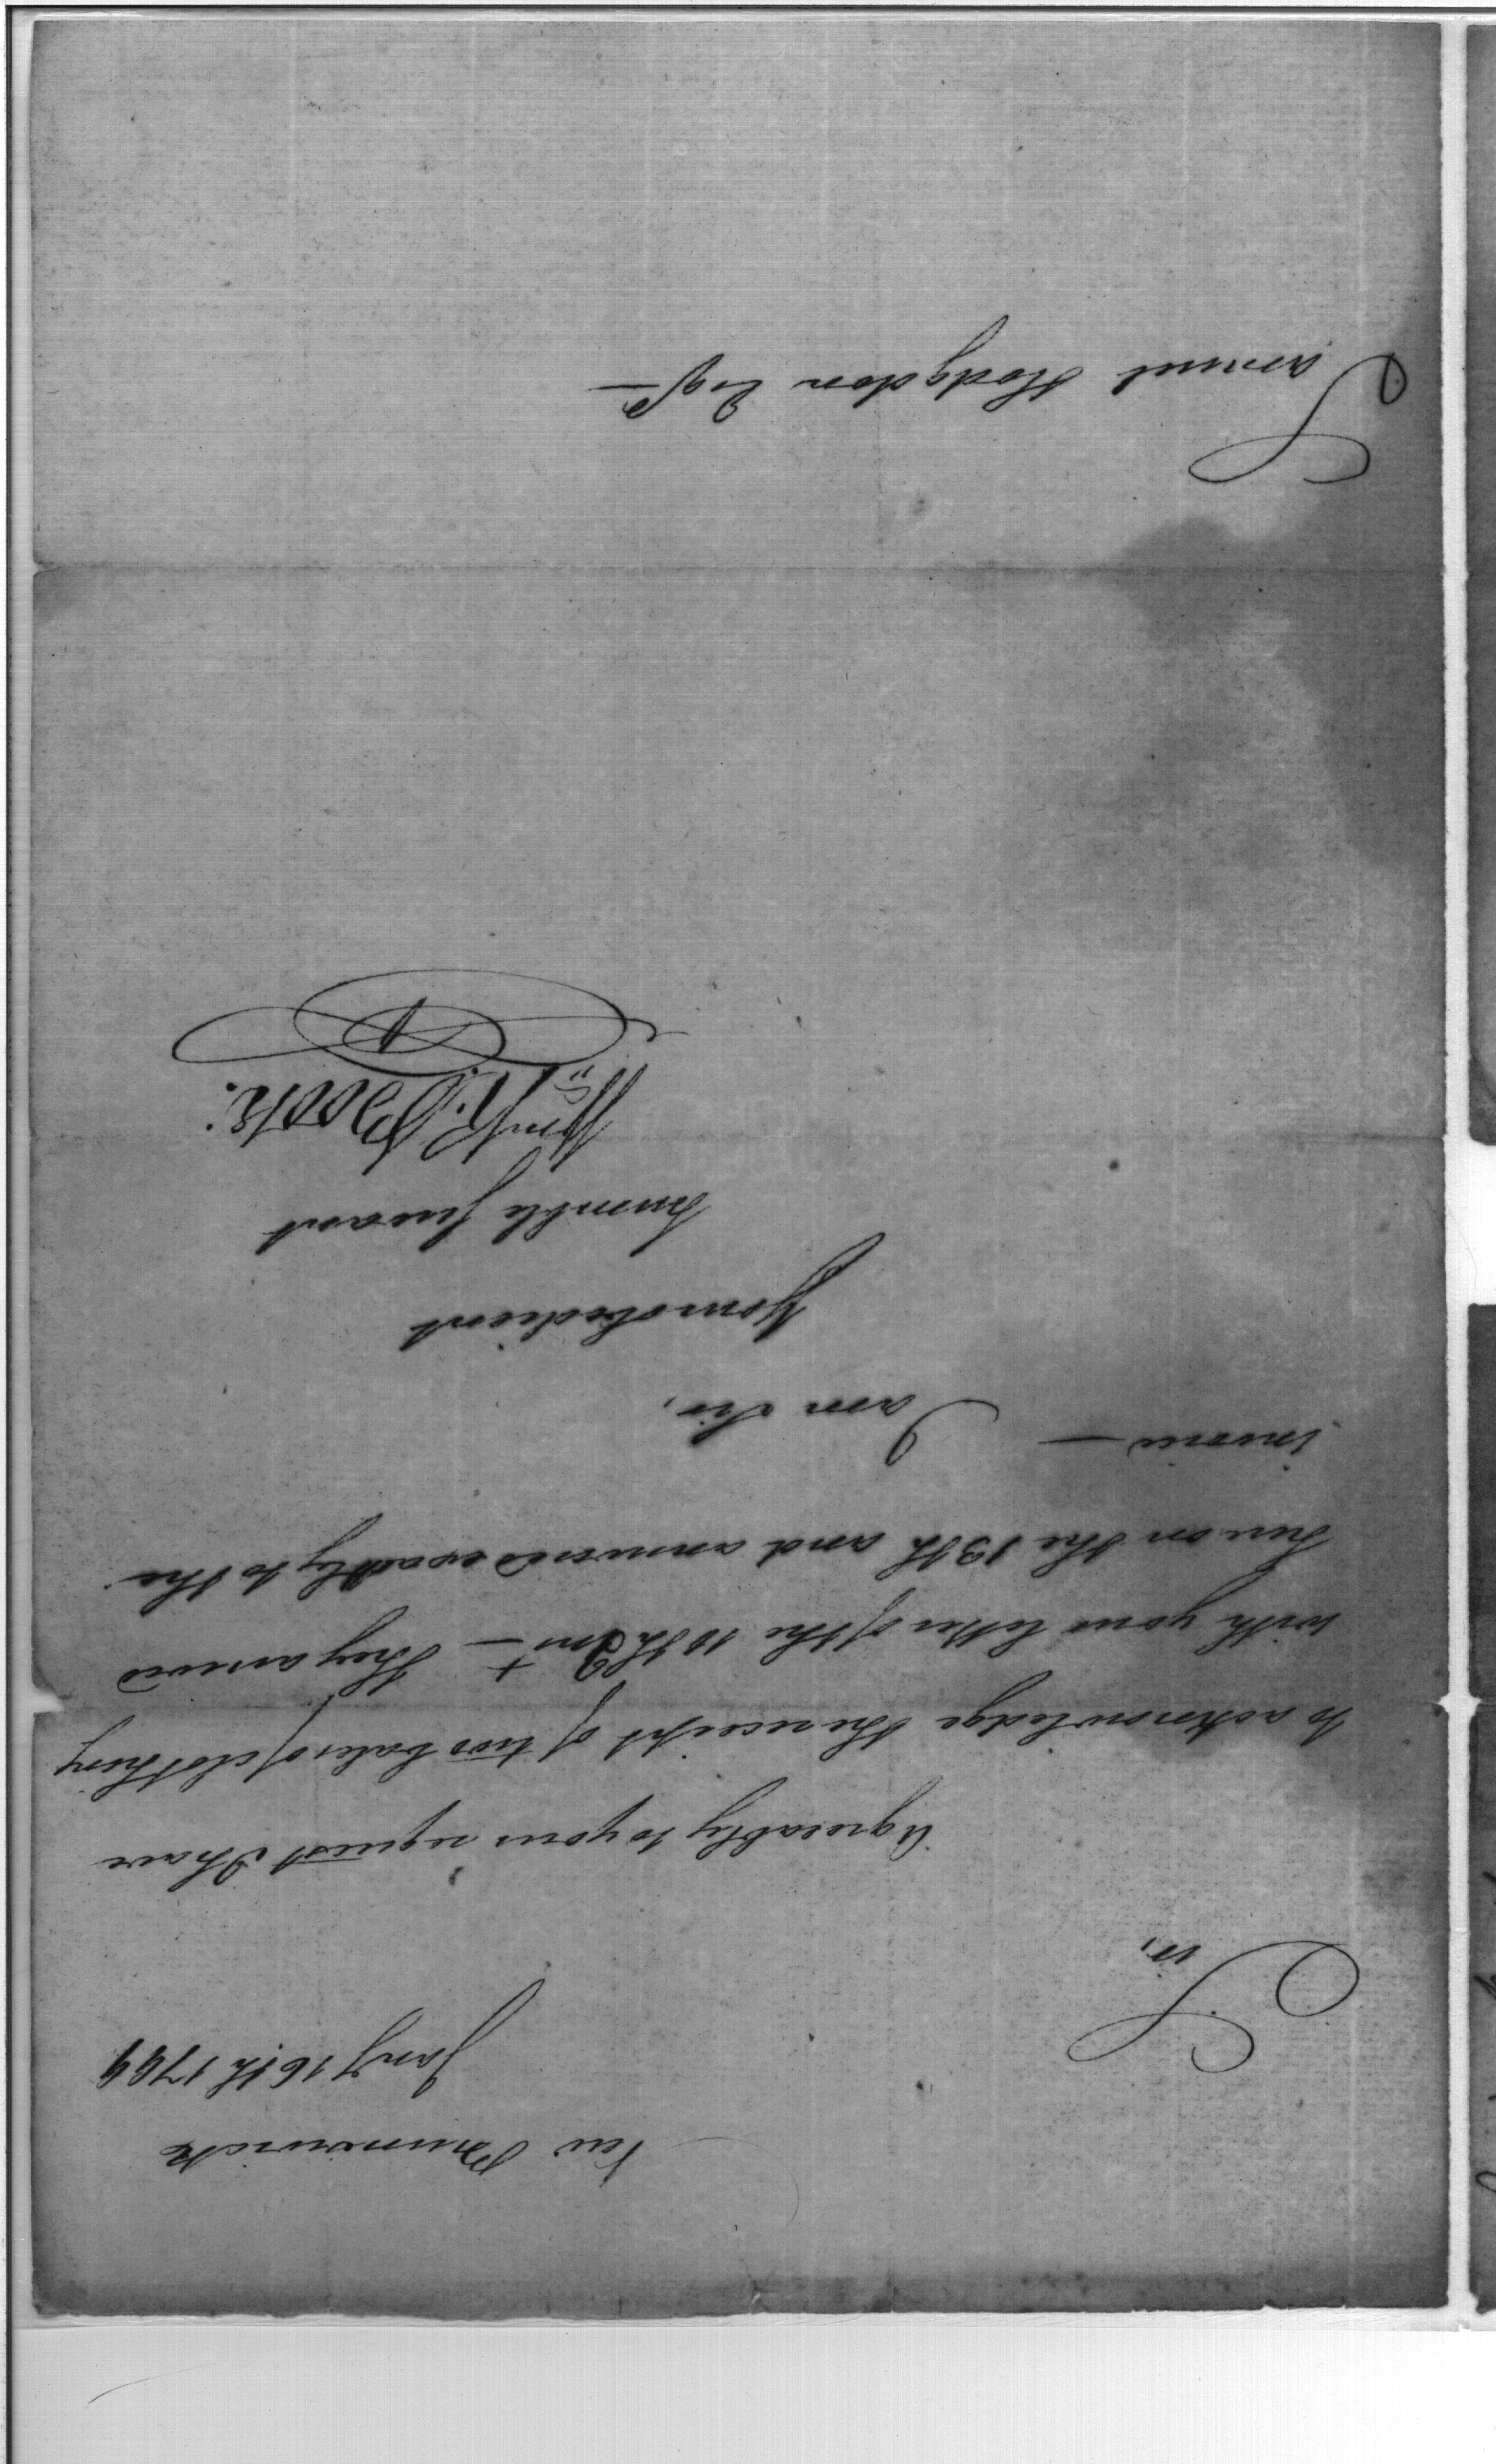 New Brunswick
Jany 16th 1799
Sir,
Agreeably to your request I have
to acknowledge the receipt of two bales of clothing
with your letter of the 10th Inst — They arrived
here on the 13th and answered exactly to the
invoice —
I am Sir,
Your obedient
humble Servant
Samuel Hodgdon Esqr —